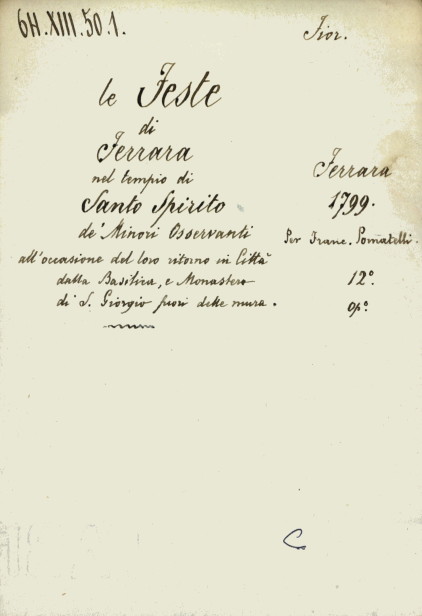 6H.XIII.50.1.
Fior.
le Feste
di
Ferrara
nel tempio di
Santo Spirito
de' Minori Osservanti
all'occasione del loro ritorno in Città
dalla Basilica, e Monastero
di S. Giorgio fuori delle mura.
Ferrara
1799.
Per Franc. Pomatelli.
12°.
op°.
C